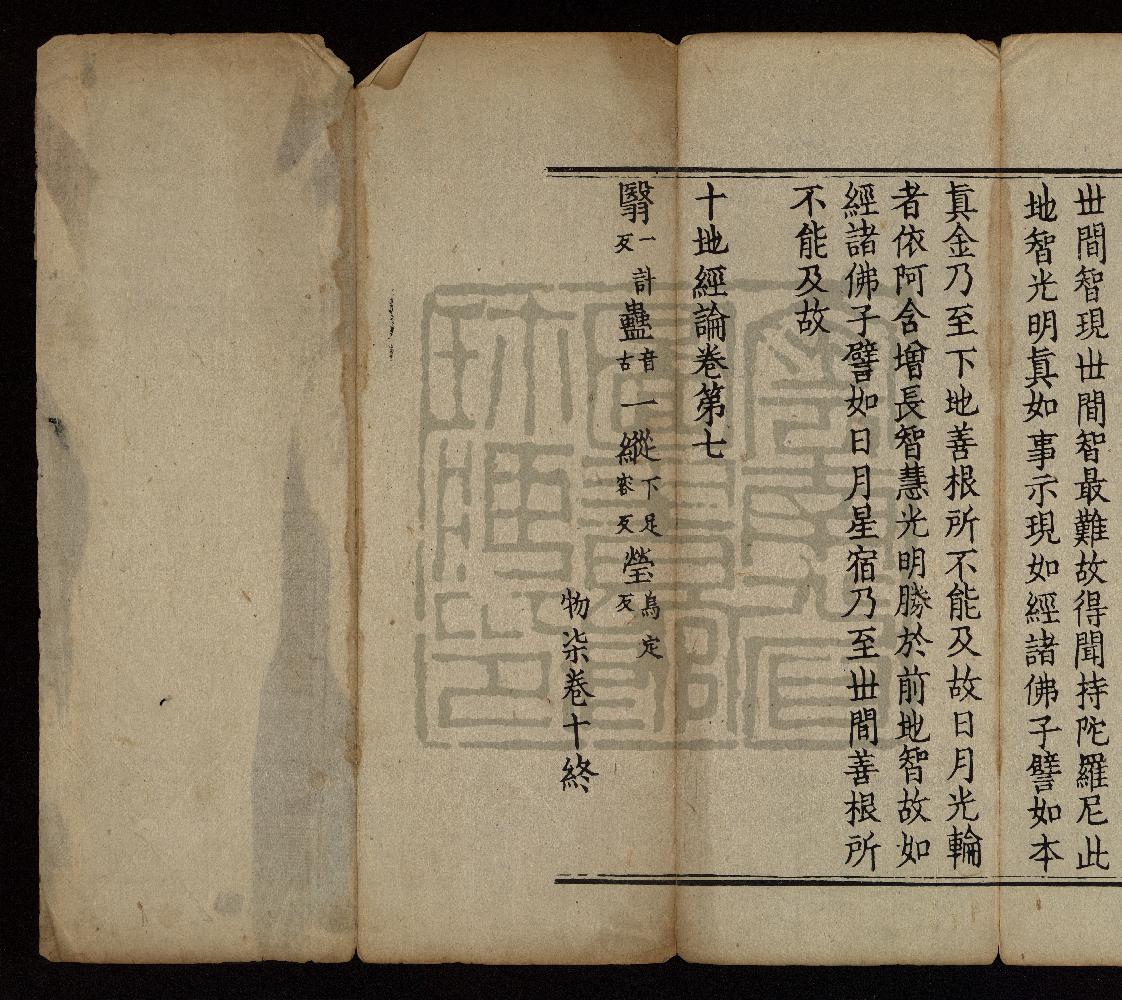 世間智現世間智最難故得聞持陀羅尼此
地智光明真如事示現如經諸佛子譬如本
真金乃至下地善根所不能及故日月光輪
者依阿含增長智慧光明勝於前地智故如
經諸佛子譬如日月星宿乃至世間善根所
不能及故
十地經論卷第七
翳一計反蠱音古一縱下足容反瑩烏定反
物柒卷十終